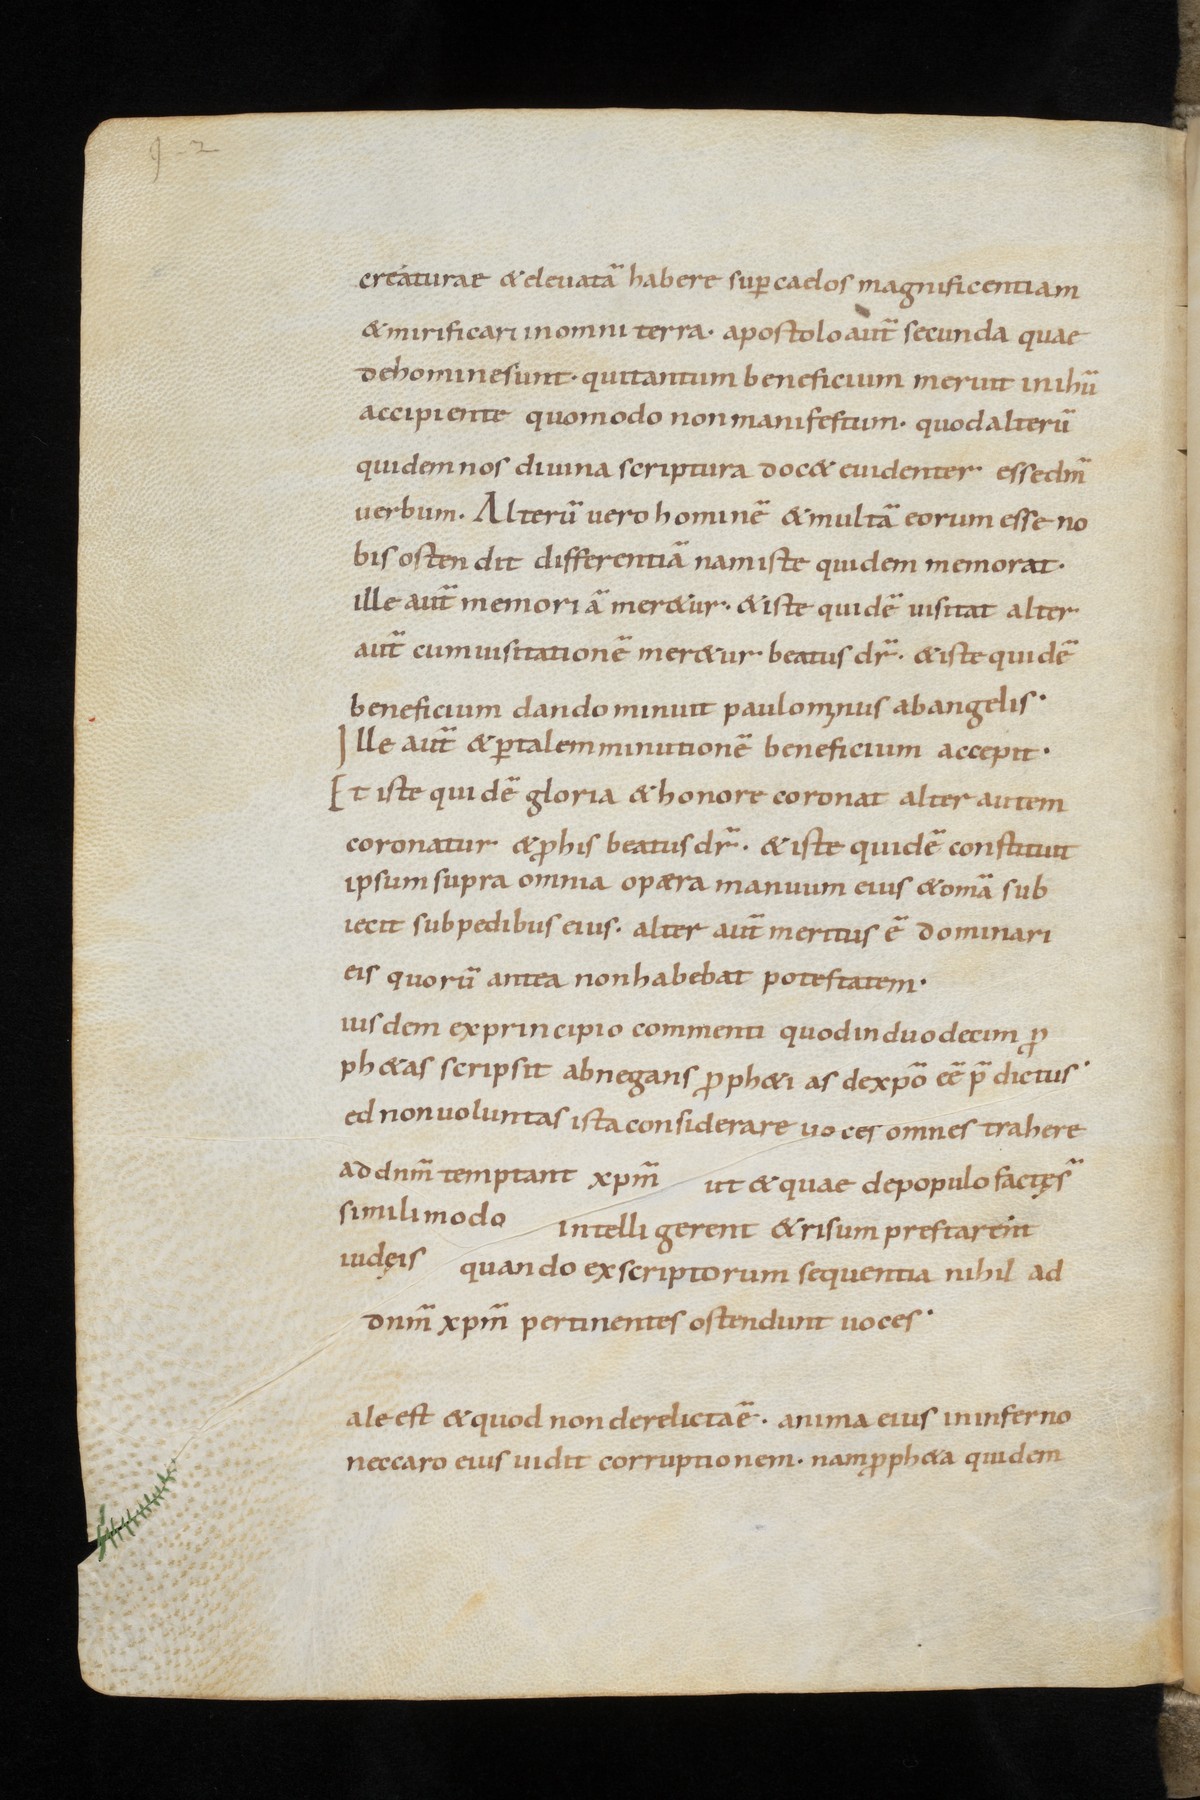 9-2
creaturae & eleuatā habere suꝑ caelos magnificentiam
& mirificari in omni terra· apostolo aut̄ secunda quae
de homine sunt· qui tantum beneficium meruit in ihū
accipiente quomodo non manifestum· quod alterū
quidem nos diuina scriptura doc& euidenter esse dm̄
uerbum· Alterū uero hominē & multā eorum esse no
bis ostendit differentiā nam iste quidem memorat·
ille aut̄ memoriā mer&ur· & iste quidē uisitat alter
aut̄ cum uisitationē mer&ur beatus dr̄· & iste quidē
beneficium dando minuit paulominus ab angelis·
Ille aut̄ & ꝑ talem minutionē beneficium accepit·
Et iste quidē gloria & honore coronat alter autem
coronatur & ꝓ his beatus dr̄· & iste quidē constituit
ipsum supra omnia opæra manuum eius & omā sub
iecit sub pedibus eius· alter aut̄ meritus ē dominari
eis quorū antea non habebat potestatem·
iusdem ex principio commenti quod in duodecim ꝓ
ph&as scripsit abnegans ꝓph&i as de xpō eē p̄dictus·
ed non uoluntas ista considerare uoces omnes trahere
ad dnm̄ temptant xpm̄ ut & quae de populo factęs̄
simili modo intelligerent & risum prestarent
iudęis quando ex scriptorum sequentia nihil ad
dnm̄ xpm̄ pertinentes ostendunt uoces·
ale est & quod non derelicta ē· anima eius in inferno
nec caro eius uidit corruptionem· nam ꝓph&a quidem